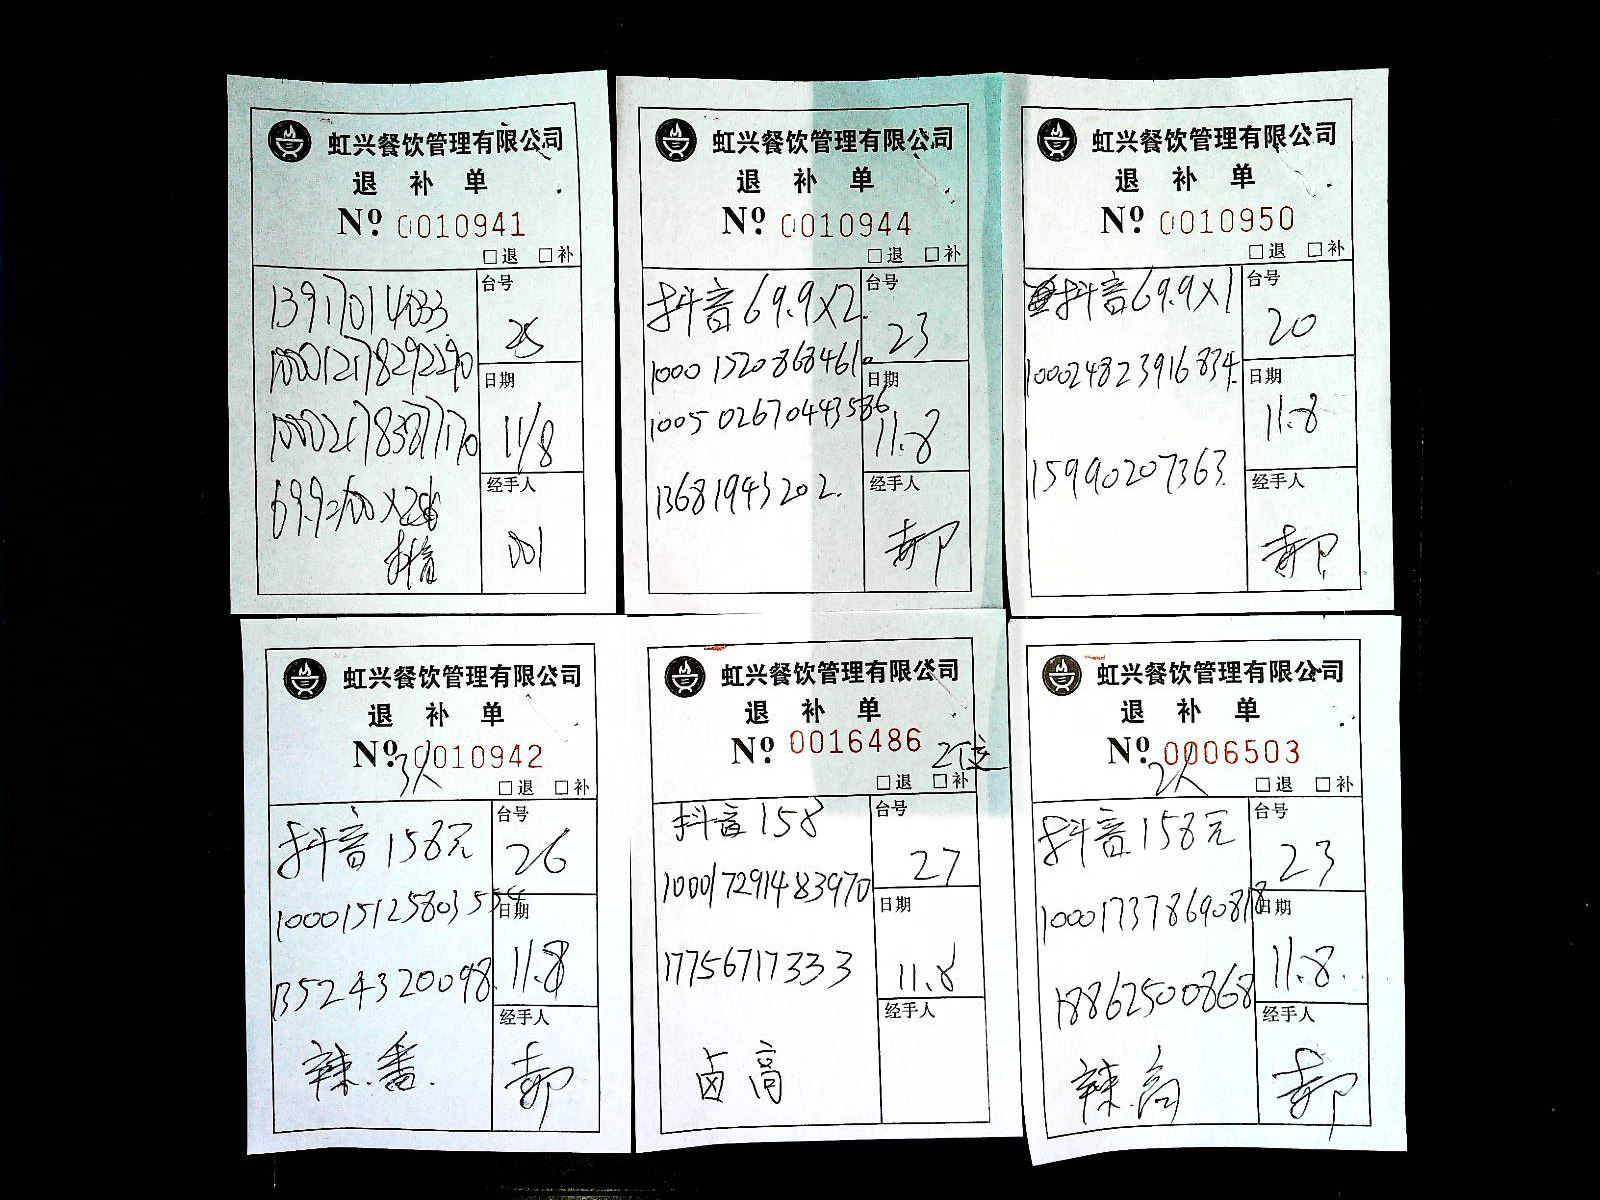 虹兴餐饮管理有限公司
退 补 单
Nº. 0010941
□退 □补
13917014033
台号
25
1000121782922190
日期
11/8
经手人
001
抖音
虹兴餐饮管理有限公司
退 补 单
Nº. 0010944
□退 □补
抖音69.9X2.
台号
23
1000 1520868461
日期
1005 02670443586
11.8
13681943202.
经手人
郝
虹兴餐饮管理有限公司
退 补 单
Nº. 0010950
□退 □补
抖音69.9X1
台号
20
100024823916834
日期
11.8
15990207363.
经手人
郝
虹兴餐饮管理有限公司
退 补 单
Nº. 0010942
3人
□退 □补
抖音158元
台号
26
日期
11.8
13524320098.
经手人
辣.番.
郝
虹兴餐饮管理有限公司
退 补 单
Nº. 0016486
2位
□退 □补
抖音158
台号
27
1000172914483970
日期
17756717333
11.8
经手人
卤 高
虹兴餐饮管理有限公司
退 补 单
Nº. 0006503
2人
□退 □补
抖音158元
台号
23
100017378690818
日期
11.8.
18862500868
经手人
辣.高
郝